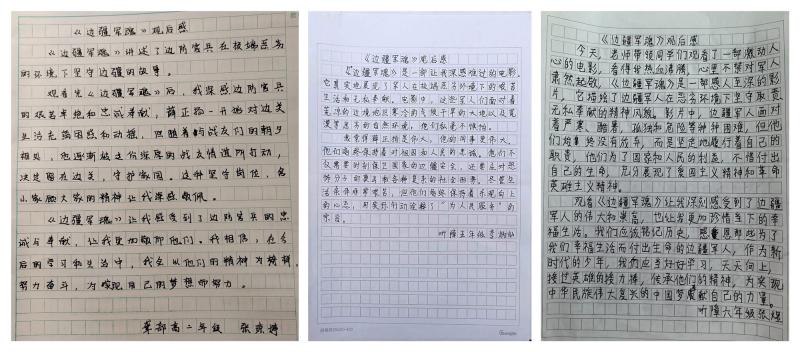 《边疆军魂》观后感
《边疆军魂》讲述了边防官兵在极端恶劣
的环境下坚守边疆的故事。
观看完《边疆军魂》后，我深感边防官兵们
的艰苦卓绝和忠诚奉献，薛正路一开始对边关
生活充满困惑和动摇，但随着与战友们的朝夕
相处，他逐渐被这份深厚的战友情谊所打动，
决定留在边关，守护家园。这种坚守岗位，舍
小家顾大家的精神让我深感敬佩。
《边疆军魂》让我感受到了边防官兵的忠
诚与奉献，让我更加敬仰他们。我相信，在今
后的学习和生活中，我会从他们的精神为榜样，
努力奋斗，为实现自己的梦想而努力。
高二年级
《边疆军魂》观后感
《边疆军魂》是一部让我深感难过的电影。
它真实地展现了军人在极端恶劣环境下的艰苦
生活和无私奉献。电影中，这些军人们面对着
荒凉的边境地区寒冷的气候干旱的大地以及荒
漠等恶劣的自然环境，他们从未不惧怕。
他们始终保持着对祖国和人民的忠诚。他们不
仅需要时刻保卫国家的边疆安全，还要应对恐
怖分子的袭击和各种复杂的社会因素。尽管生
活条件非常艰苦，但他们始终保持着乐观向上
的心态，用实际行动诠释了“为人民服务”的
宗旨。
听障五年级
《边疆军魂》观后感
今天，老师带领同学们观看了一部激动人
心的电影，看得我热血沸腾，心里不禁对军人
肃然起敬，《边疆军魂》为是一部感人至深的影
片，它描绘了边疆军人在恶劣环境下坚守职责，
无私奉献的精神风貌。影片中，边疆军人面对
着严寒、酷暑、孤独和危险等种种困难，但他
们始终没有放弃，而是坚定地履行着自己的
职责，他们为了国家和人民的利益，不惜付出
自己的生命，充分展现了爱国主义精神和革命
英雄主义精神。
观看《边疆军魂》让我深刻感受到了边疆
军人的伟大和崇高，也让我更加珍惜当下的幸
福生活。我们应该铭记历史，感恩那些为了
我们幸福生活而付出生命的边疆军人，作为新
时代的少年，我们应当好好学习，天天向上，
接过英雄的接力棒，传承他们的精神，为实现
中华民族伟大复兴的中国梦贡献自己的力量。
听障六年级张煜